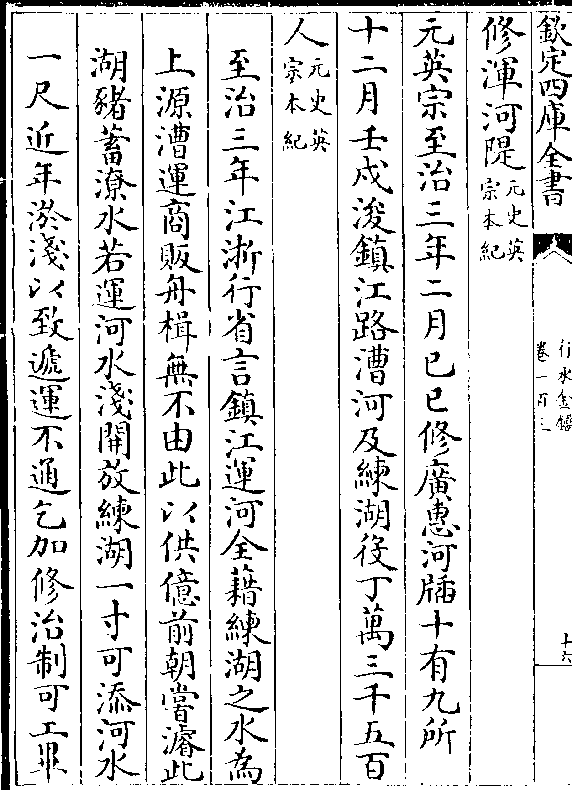 欽定四庫全書
行水金鑑
卷一百三
十六
修渾河隄元史英宗本紀
元英宗至治三年二月己巳修廣惠河牐十有九所
十二月壬戌浚鎮江路漕河及練湖役丁萬三千五百
人元史英宗本紀
至治三年江浙行省言鎮江運河全藉練湖之水為
上源漕運商販舟楫無不由此以供億前朝嘗濬此
湖豬蓄潦水若運河水淺開放練湖一寸可添河水
一尺近年淤淺以致遞運不通乞加修治制可工畢